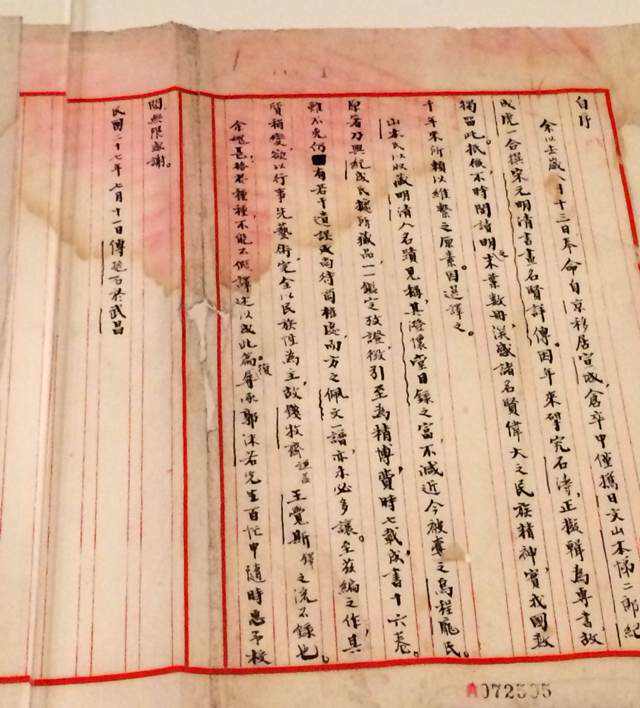 自序
余以去歲八月十三日奉命自京移居宣城,倉卒中僅攜日文山本悌二郎紀
成虎一合撰宋元明清書畫名賢詳傳。因年來研究石濤,正擬輯為專書,故
獨留此。不時閱諸明末之業數冊,深感諸名賢偉大之民族精神,實我國數
千年來所賴以維繫之原素,因選譯之。
山本氏以收藏明清人名蹟見稱,其澄懷堂目錄之富,不減近今被奪之烏程龐氏。
原著乃與紀成氏據所藏品一一鑒定攷證,徵引至為精博,費時七載,成書十六卷。
雖不免仍有若干遺誤或尚待商榷處,而方之佩文一譜,亦未必多讓。至茲編之作,其
質稍變,欲以行事先藝術,完全以民族性為主,故錢牧齋謙益王覺斯鐸之流不錄也。
余媿甚,種種不能不假譯述以成此篇。復辱承郭沫若先生百忙中隨時惠予校
閱,無限感謝。
民國二十七年七月十一日傅抱石於武昌
072505